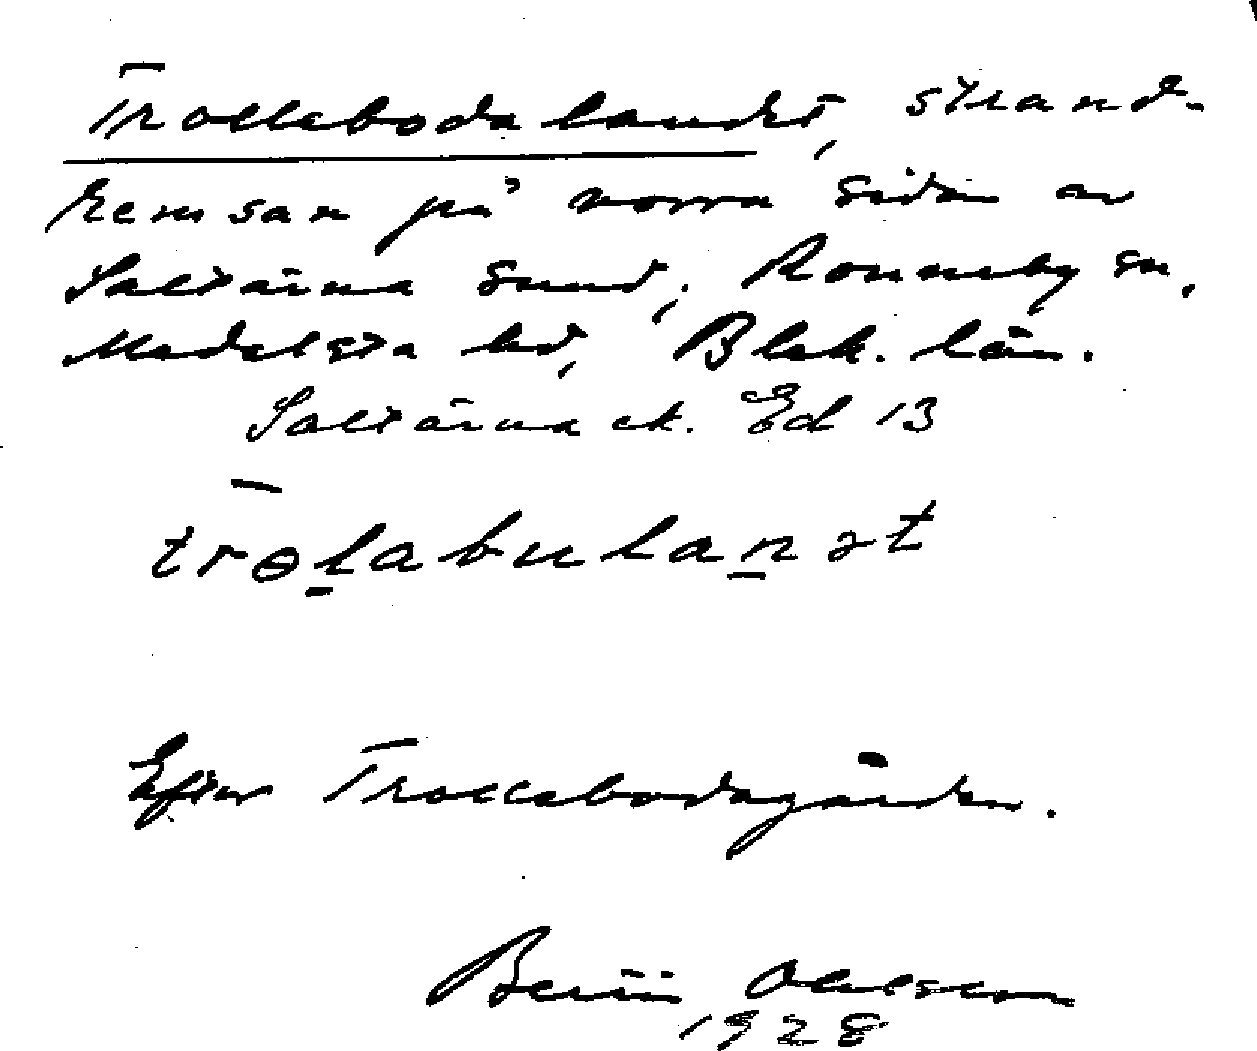 Trollebodalandet, strand-
remsan på norra sidan av
Saltärna sund, Ronneby sn,
Medelsta hd, Blek. län.
Saltärna ek. Ed 13
trolabulanət
Efter Trollebodagården.
Bertil Ohlsson
1928